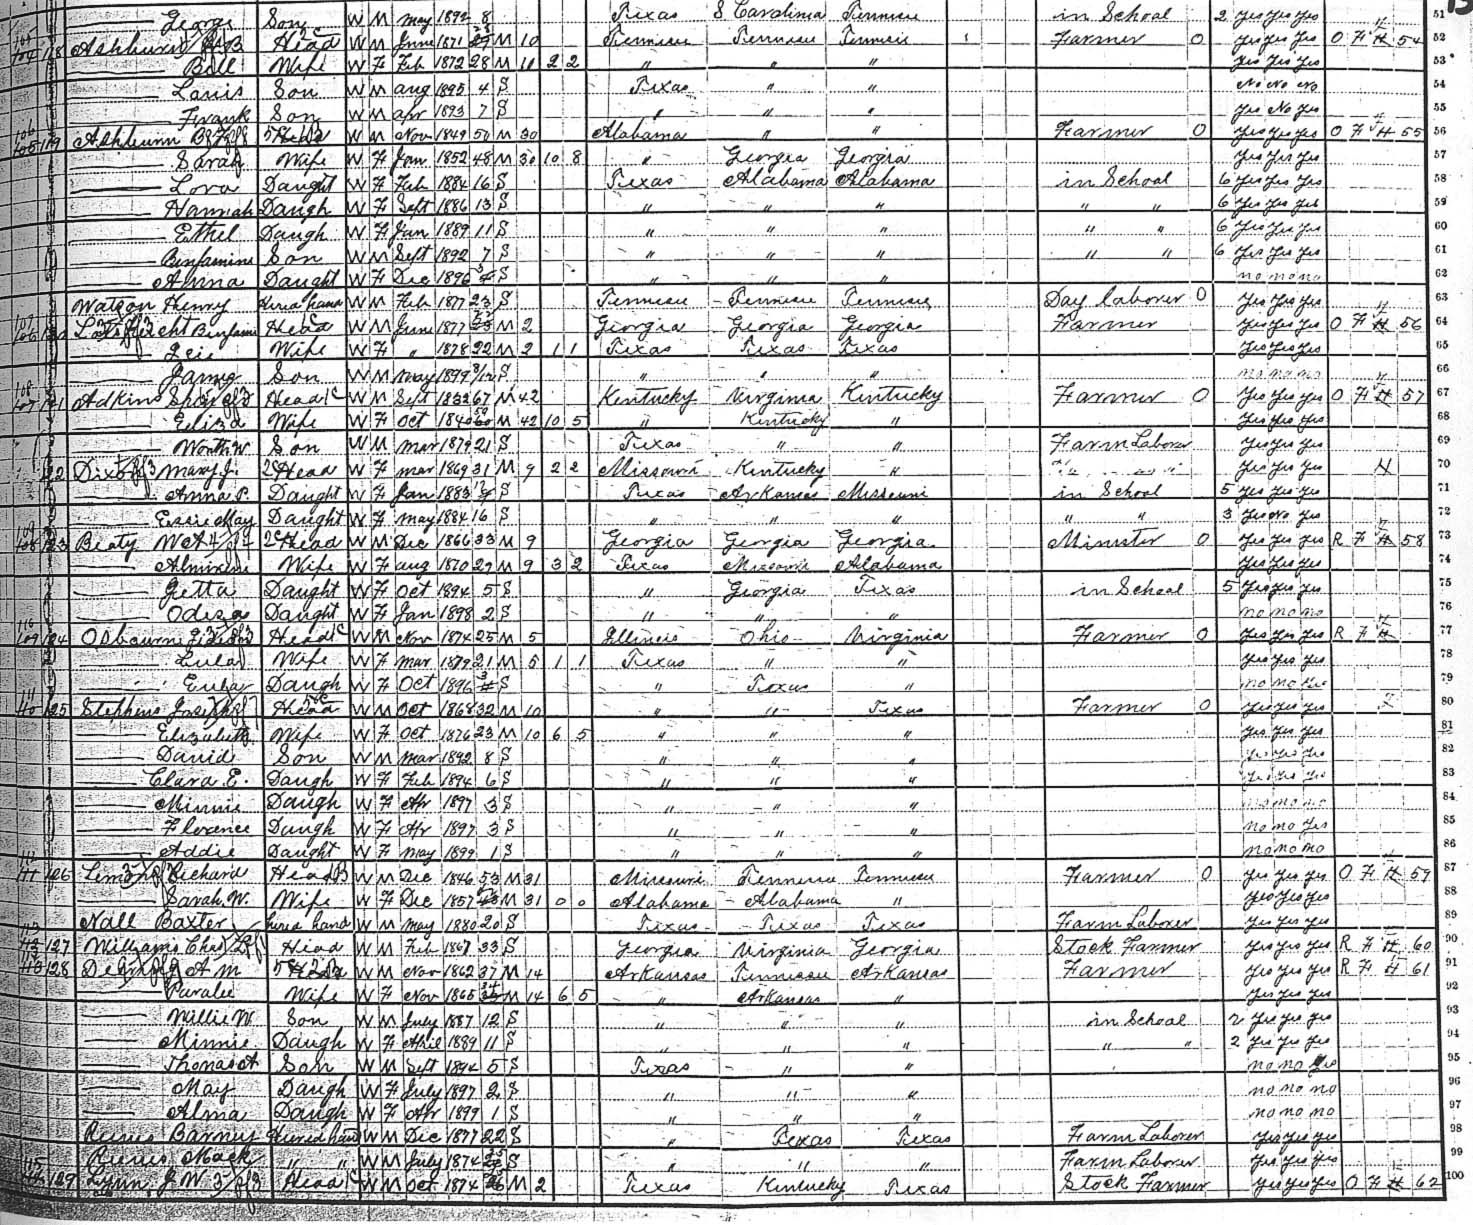 George Son W M May 1892 8 Texas S Carolina in School 2 yes yes yes 51
Ashburn Head W M June 1871 M 10 Tennessee Tennessee Tennessee Farmer 0 yes yes yes O F H 54 52
Bell Wife W F Feb 1872 28 M 10 2 2 " " " yes yes yes 53
Louis Son W M Aug 1895 4 S Texas " " No No No 54
Frank Son W M Apr 1893 7 S " " " yes No yes 55
Ashburn Head W M Nov 1849 50 M 30 Alabama " " Farmer 0 yes yes yes O F H 55 56
Sarah Wife W F Jan 1852 48 M 30 10 8 " Georgia Georgia yes yes yes 57
Lova Daught W F Feb 1884 16 S Texas Alabama Alabama in School 6 yes yes yes 58
Hannah Daugh W F Sept 1886 13 S " " " " " 6 yes yes yes 59
Ethel Daugh W F Jan 1889 11 S " " " " " 6 yes yes yes 60
Benjamine Son W M Sept 1892 7 S " " " " " 6 yes yes yes 61
Anna Daught W F Dec 1896 S " " " no no no 62
Watson Henry Hired hand W M Feb 1877 23 S Tennessee Tennessee Tennessee Day laborer 0 yes yes yes 63
Head W M June 1877 M 2 Georgia Georgia Georgia Farmer yes yes yes O F H 56 64
Wife W F " 1878 22 M 2 1 1 Texas Texas Texas yes yes yes 65
James Son W M May 1899 S " " " no no no 66
Adkins Head W M Sept 1832 67 M 42 Kentucky Virginia Kentucky Farmer 0 yes yes yes O F H 57 67
Eliza Wife W F Oct 1840 M 42 10 5 " Kentucky " yes yes yes 68
Worth W Son W M Mar 1879 21 S Texas " " Farm Laborer yes yes yes 69
122 Mary J. Head W F Mar 1869 31 M 9 2 2 Missouri Kentucky " yes yes yes H 70
Anna P. Daught W F Jan 1883 S Texas Arkansas Missouri in School 5 yes yes yes 71
Essie May Daught W F May 1884 16 S " " " " " 3 yes No yes 72
123 Beaty Head W M Dec 1866 33 M 9 Georgia Georgia Georgia Minister 0 yes yes yes R F H 58 73
Wife W F Aug 1870 29 M 9 3 2 Texas Missouri Alabama yes yes yes 74
Getta Daught W F Oct 1894 5 S " Georgia Texas in School 5 yes yes yes 75
Daught W F Jan 1898 2 S " " " no no no 76
124 Osbourn Head W M Nov 1874 25 M 5 Illinois Ohio Virginia Farmer 0 yes yes yes R F H 77
Lula Wife W F Mar 1879 21 M 5 1 1 Texas " " yes yes yes 78
Daugh W F Oct 1896 S " Texas " 79
125 Stephens Joseph Head W M Oct 1868 32 M 10 " " Texas Farmer 0 yes yes yes 80
Elizabeth Wife W F Oct 1876 23 M 10 6 5 " " " yes yes yes 81
David Son W M Mar 1892 8 S " " " yes yes yes 82
Clara E. Daugh W F Feb 1894 6 S " " " yes yes yes 83
Minnie Daugh W F Apr 1897 3 S " " " no no no 84
Florence Daugh W F Apr 1897 3 S " " " no no yes 85
Addie Daught W F May 1899 1 S " " " no no no 86
126 Richard Head W M Dec 1846 53 M 31 Missouri Tennessee Tennessee Farmer 0 yes yes yes O F H 59 87
Sarah W. Wife W F Dec 1857 M 31 0 0 Alabama Alabama " yes yes yes 88
Nall Baxter hired hand W M May 1880 20 S Texas Texas Texas Farm Laborer yes yes yes 89
127 Williams Chas Head W M Feb 1867 33 S Georgia Virginia Georgia Stock Farmer yes yes yes R F H 60 90
128 A M Head W M Nov 1862 37 M 14 Arkansas Tennessee Arkansas Farmer yes yes yes R F H 61 91
Paralee Wife W F Nov 1865 M 14 6 5 " Arkansas " yes yes yes 92
Willie W Son W M July 1887 12 S " " " in School 2 yes yes yes 93
Minnie Daugh W F April 1889 11 S " " " " " 2 yes yes yes 94
Thomas A Son W M Sept 1894 5 S Texas " " no no yes 95
May Daugh W F July 1897 2 S " " " no no no 96
Alma Daugh W F Apr 1899 1 S " " " no no no 97
Barney Hired hand W M Dec 1877 22 S " Texas Texas Farm Laborer yes yes yes 98
Mack " " W M July 1874 S " " " Farm Laborer yes yes yes 99
129 Lynn J W Head W M Oct 1874 M 2 Texas Kentucky Texas Stock Farmer yes yes yes O F H 62 100